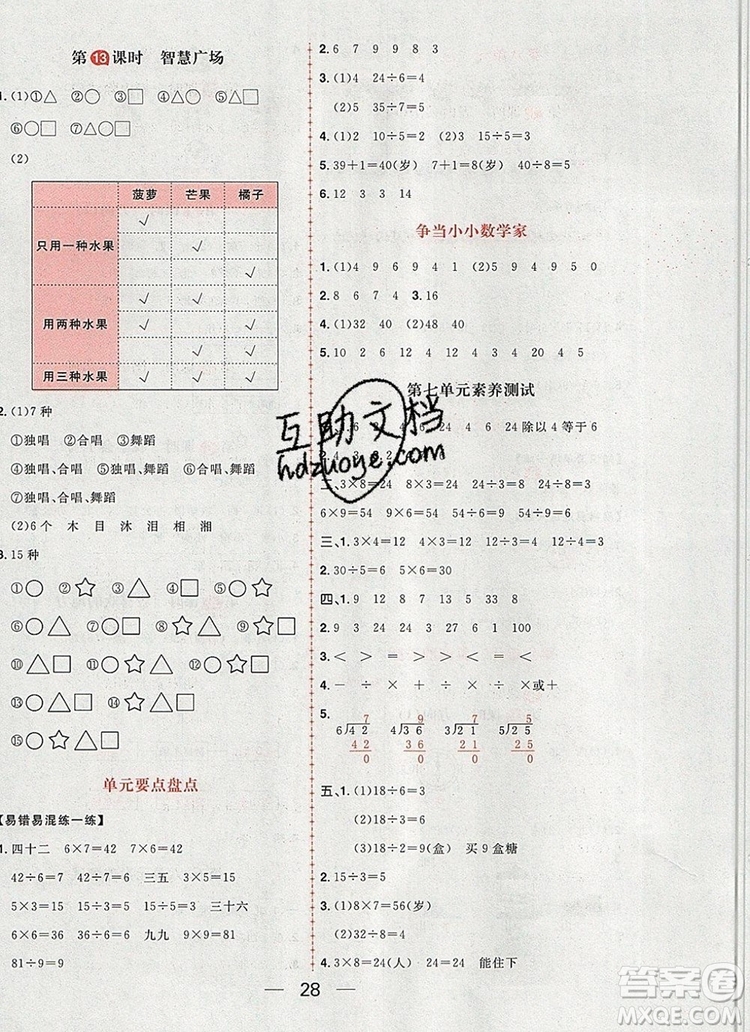 第13课时 智慧广场
1.(1)①△ ②○ ③□ ④☆ ⑤△○
⑥○□ ⑦△□
(2)
菠萝 芒果 橘子
√
只用一种水果 √
√
√ √
用两种水果 √ √
√ √
用三种水果 √ √ √
2.(1)7种
①独唱 ②合唱 ③舞蹈
④独唱、合唱 ⑤独唱、舞蹈
⑥合唱、舞蹈
⑦独唱、合唱、舞蹈
(2)6个 木 目 沐 泪 相 湘
3.15种
①○ ②☆ ③△ ④□ ⑤○☆
⑥○△ ⑦○□ ⑧☆△ ⑨☆□
⑩△□ ⑪○☆△ ⑫○☆□
⑬○△□ ⑭☆△□
⑮○☆△□
单元要点盘点
【易错易混练一练】
1.四十二 6×7=42 7×6=42
42÷6=7 三五 3×5=15
5×3=15 15÷3=5 三十六
6×6=36 36÷6=6 九九 9×9=81
81÷9=9
2.6 7 9 9 8 3
3.(1)4 24÷6=4
(2)5 35÷7=5
4.(1)2 10÷5=2 (2)3 15÷5=3
5.39+1=40(岁) 40÷8=5
6.12 3 3 14
争当小小数学家
1.(1)4 9 6 9 4 1 (2)5 9 4 9 5 0
2.8 6 7 4 7 4 3.16
4.(1)32 40 (2)48 40
5.10 6 2 12 4 12 4 20 4 5
第七单元素养测试
24 4 6 24除以4等于6
3×8=24 24÷3=8 24÷8=3
6×9=54 9×6=54 54÷6=9 54÷9=6
三、1.3×4=12 4×3=12 12÷3=4 12÷4=3
2.30÷5=6 30÷6=5
四、1.9 12 8 7 5 33 8
2.9 3 24 24 6 1 100
3.< < > > < =
4.- ÷ × ÷ - × ÷ ÷ - ×或+
5.
7 9 7 5
6)42 4)36 3)21 5)25
42 36 21 25
0 0 0 0
五、1.(1)18÷6=3
(2)18÷3=6
(3)18÷2=9(盒) 买9盒糖
2.15÷3=5
3.(1)8×7=56(岁)
(2)32÷8=4
4.3×8=24(人) 24=24 能住下
互助文档
hdzuoye.com
28
答案圈
MXQE.COM